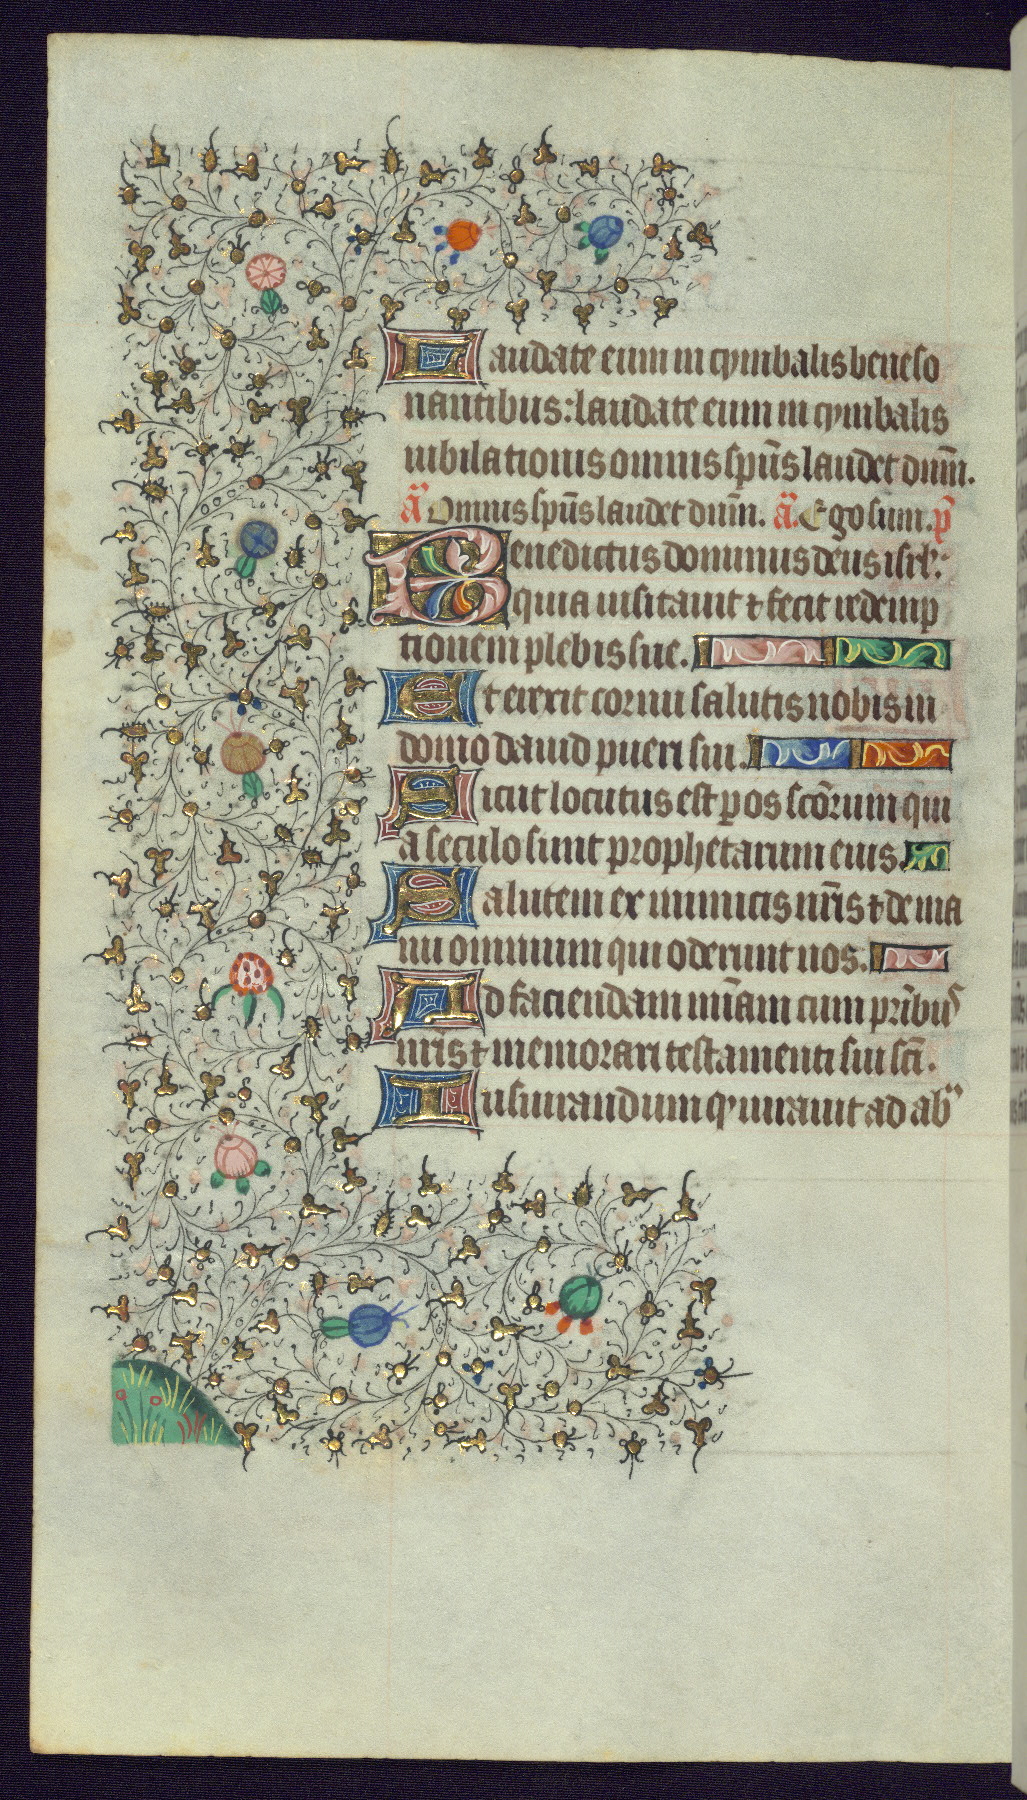 Laudate eum in cymbalis beneso
nantibus: laudate eum in cymbalis
iubilationis omnis sp̄us laudet dn̄m.
a᷑ Omnis sp̄us laudet dn̄m. a᷑. Ego sum. p̄
Benedictus dominus deus isrl̄:
quia uisitauit ⁊ fecit redemp
tionem plebis sue.
Et erexit cornu salutis nobis in
domo dauid pueri sui.
Sicut locutus est ꝑ os sc̄orum qui
a seculo sunt prophetarum eius.
Salutem ex inimicis nr̄is ⁊ de ma
nu omnium qui oderunt nos.
Ad faciendam mīam cum prībus
nr̄is ⁊ memorari testamenti sui sc̄i.
Iusiurandum qͥ iurauit ad ab